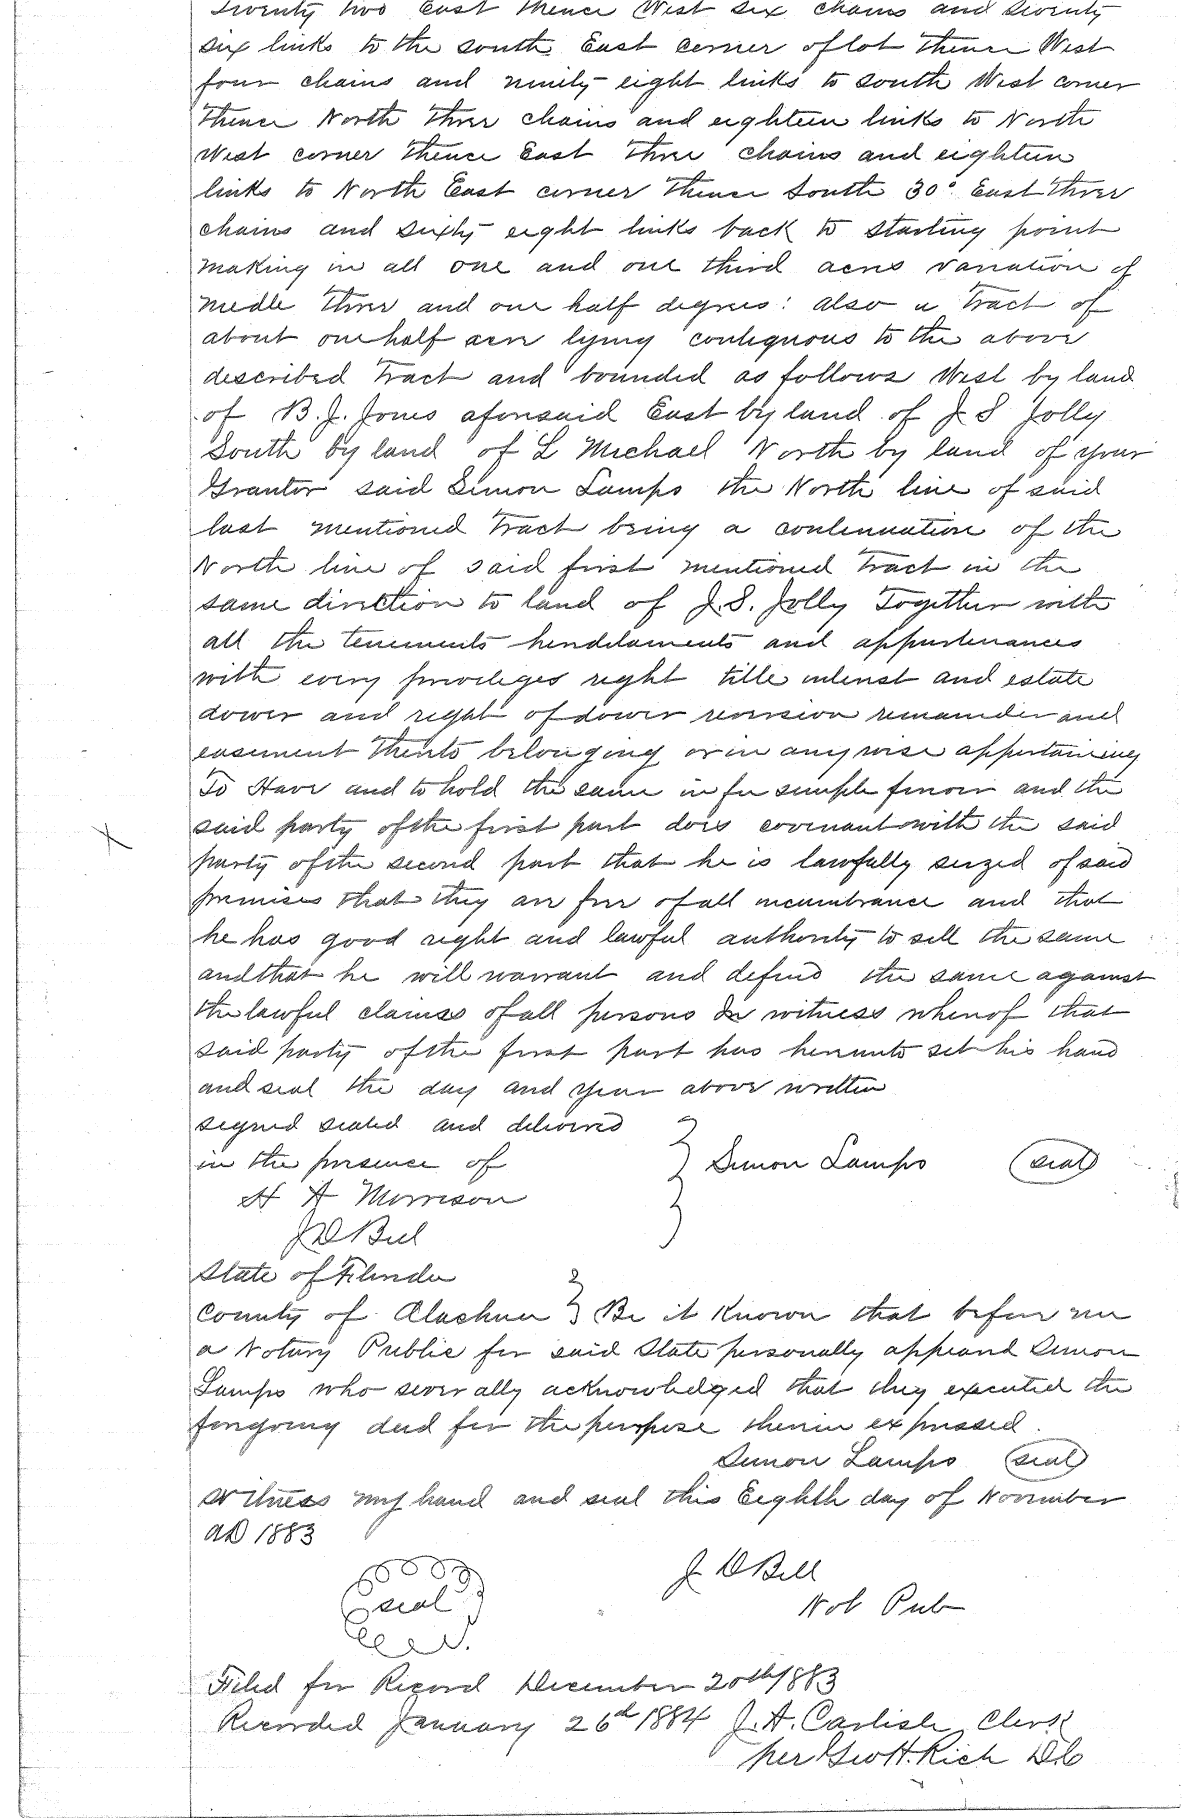 Twenty two East thence West six chains and seventy
six links to the south East corner of lot thence West
four chains and ninety eight links to south West corner
thence North three chains and eighteen links to North
West corner thence East three chains and eighteen
links to North East corner thence South 30° East three
chains and sixty eight links back to starting point
making in all one and one third acres variation of
nedle three and one half degrees: also a Tract of
about one half acre lying contiguous to the above
described Tract and bounded as follows West by land
of B. J. Jones aforesaid East by land of J S Jolly
South by land of L Michael North by land of your
Grantor said Simon Lampo the North line of said
last mentioned Tract being a continuation of the
North line of said first mentioned Tract in the
same direction to land of J. S. Jolly Together with
all the tenements and appurtenances
with every privileges right title interest and estate
dower and right of dower reversion remainder and
easement thereto belonging or in anywise appertaining
To Have and to hold the same in fee simple forever and the
said party of the first part does covenant with the said
party of the second part that he is lawfully seized of said
premises that they are free of all incumbrance and that
he has good right and lawful authority to sell the same
and that he will warrant and defend the same against
the lawful claims of all persons In witness whereof that
said party of the first part has hereunto set his hand
and seal the day and year above written
signed sealed and delivered
in the presence of
Simon Lampo (seal)
H A Morrison
J D Bell
State of Florida
County of Alachua } Be it Known that before me
a Notary Public for said State personally appeared Simon
Lampo who severally acknowledged that they executed the
foregoing deed for the purpose therein expressed.
Simon Lampo (seal)
Witness my hand and seal this Eighth day of November
AD 1883
J D Bell
seal
Not Pub
Filed for Record December 20th 1883
Recorded January 26d 1884 J. A. Carlisle Clerk
per Geo H. Rich D.C